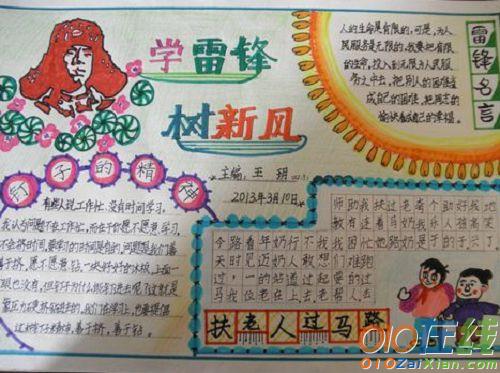 学雷锋
树新风
主编：王玥
2013年3月10日
人的生命是有限的，可是，为人
民服务是无限的，我要把有限
的生命，投入到无限为人民服
务之中去。把别人的困难当
成自己的困难，把同志的
愉快看成自己的幸福。
雷锋名言
钉子的精神
有些人说工作忙、没有时间学习。
我认为问题不在工作忙，而在于你愿不愿意学习，
会不会挤时间。要学习的时间是有的，问题是我们善
不善于挤，愿不愿意钻。一块好好的木板，上面一
个眼也没有，但钉子为什么能钉进去呢？这就是
靠压力硬挤硬钻进去的。我们在学习上，也要提倡
这种钉子精神，善于挤、善于钻。
今天过马
路时，我
看见一位
年迈的老
奶奶站在
行人道上
不敢过去
我想起老
扶老人过马路
010在线
010ZaiXian.com